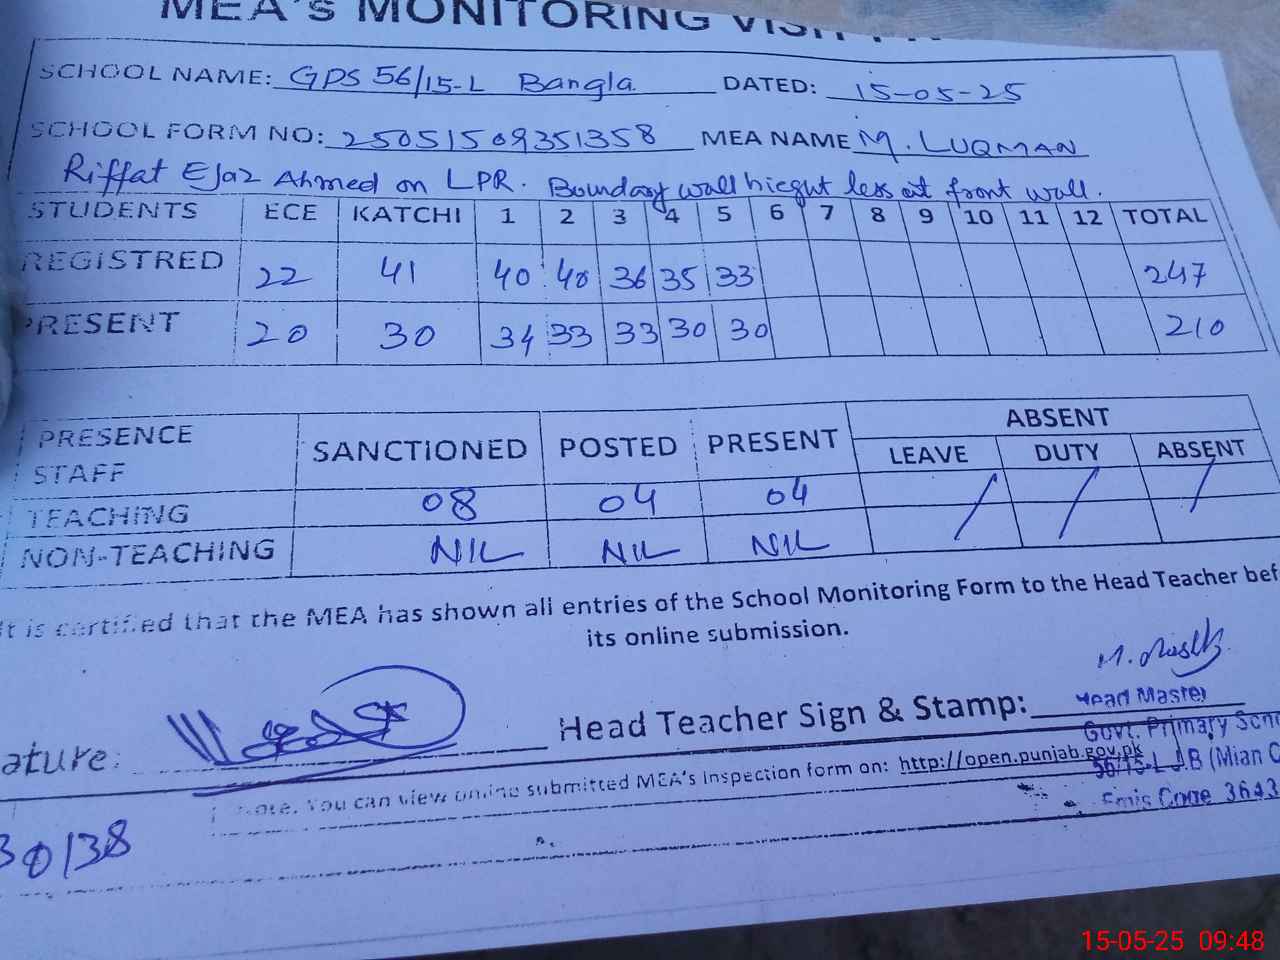 MEA's MONITORING VISIT
SCHOOL NAME: GPS 56/15-L Bangla DATED: 15-05-25
SCHOOL FORM NO: 25051509351358 MEA NAME M. LUQMAN
Riffat Ejaz Ahmed on LPR. Boundary wall hieght less at front wall.
STUDENTS ECE KATCHI 1 2 3 4 5 6 7 8 9 10 11 12 TOTAL
REGISTRED 22 41 40 40 36 35 33 247
PRESENT 20 30 34 33 33 30 30 210
ABSENT
PRESENCE STAFF SANCTIONED POSTED PRESENT LEAVE DUTY ABSENT
TEACHING 08 04 04
NON-TEACHING NIL NIL NIL
It is certified that the MEA has shown all entries of the School Monitoring Form to the Head Teacher bef
its online submission.
ature: Head Teacher Sign & Stamp:
Head Master
Govt. Primary Scho
56/15-L J.B (Mian C
Emis Code 3643
Note. You can view online submitted MEA's inspection form on: http://open.punjab.gov.pk
30138
15-05-25 09:48